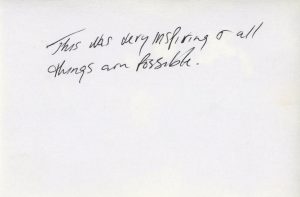 This was very inspiring & all
things are possible.